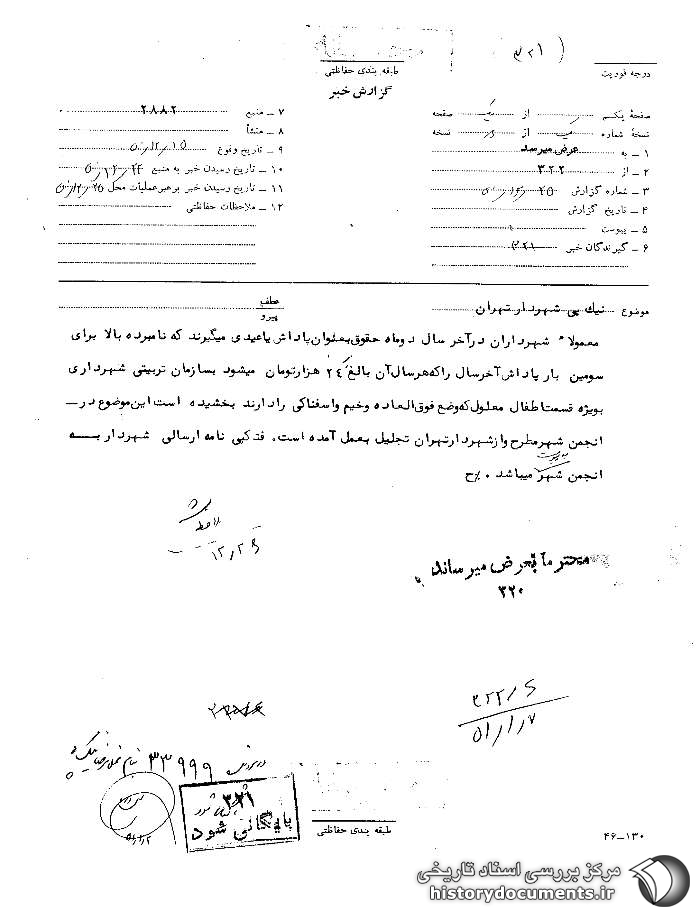 (۳۲۱)
درجه فوریت
طبقه بندی حفاظتی
گزارش خبر
صفحهٔ یکم از یک صفحه
نسخهٔ شماره یک از نسخه
۱ ـ به عرض میرسد
۲ ـ از ۳۲۲
۳ ـ شماره گزارش
۴ ـ تاریخ گزارش
۵ ـ پیوست
۶ ـ گیرندگان خبر ۳۲۱
۷ ـ منبع ۲۸۸۲
۸ ـ منشأ
۹ ـ تاریخ وقوع ۵۰/۱۲/۱۵
۱۰ ـ تاریخ رسیدن خبر به منبع ۵۰/۱۲/۲۴
۱۱ ـ تاریخ رسیدن خبر برهبر عملیات محل ۵۰/۱۲/۲۵
۱۲ ـ ملاحظات حفاظتی
موضوع نیک پی شهردار تهران
عطف
پیرو
معمولا" شهرداران در آخر سال دوماه حقوق بعنوان پاداش یا عیدی میگیرند که نامبرده بالا برای
سومین بار پاداش آخر سال را که هر سال آن بالغ ۲۴ هزار تومان میشود بسازمان تربیتی شهرداری
بویژه قسمت اطفال معلول که وضع فوق العاده وخیم واسفناکی را دارند بخشیده است این موضوع در ـ
انجمن شهر مطرح و از شهردار تهران تجلیل بعمل آمده است. فتدکپی نامه ارسالی شهردار بـــه
انجمن شهر به پیوست میباشد ۰ ٪ح
ملاحظه شد
۱۲/۲۶
محترماً بعرض میرساند
۳۲۰
۳۲۲/
۵۱/۱/۷
۳۳۹۹۹
۳۲۱
بایگانی شود
طبقه بندی حفاظتی
۴۶-۱۳۰
مرکز بررسی اسناد تاریخی
historydocuments.ir